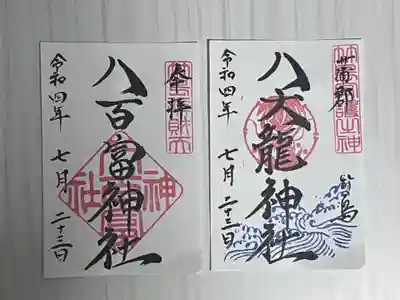 奉拝
八百富神社
令和四年 七月 二十三日
八大龍神社
令和四年 七月 二十三日
竹島